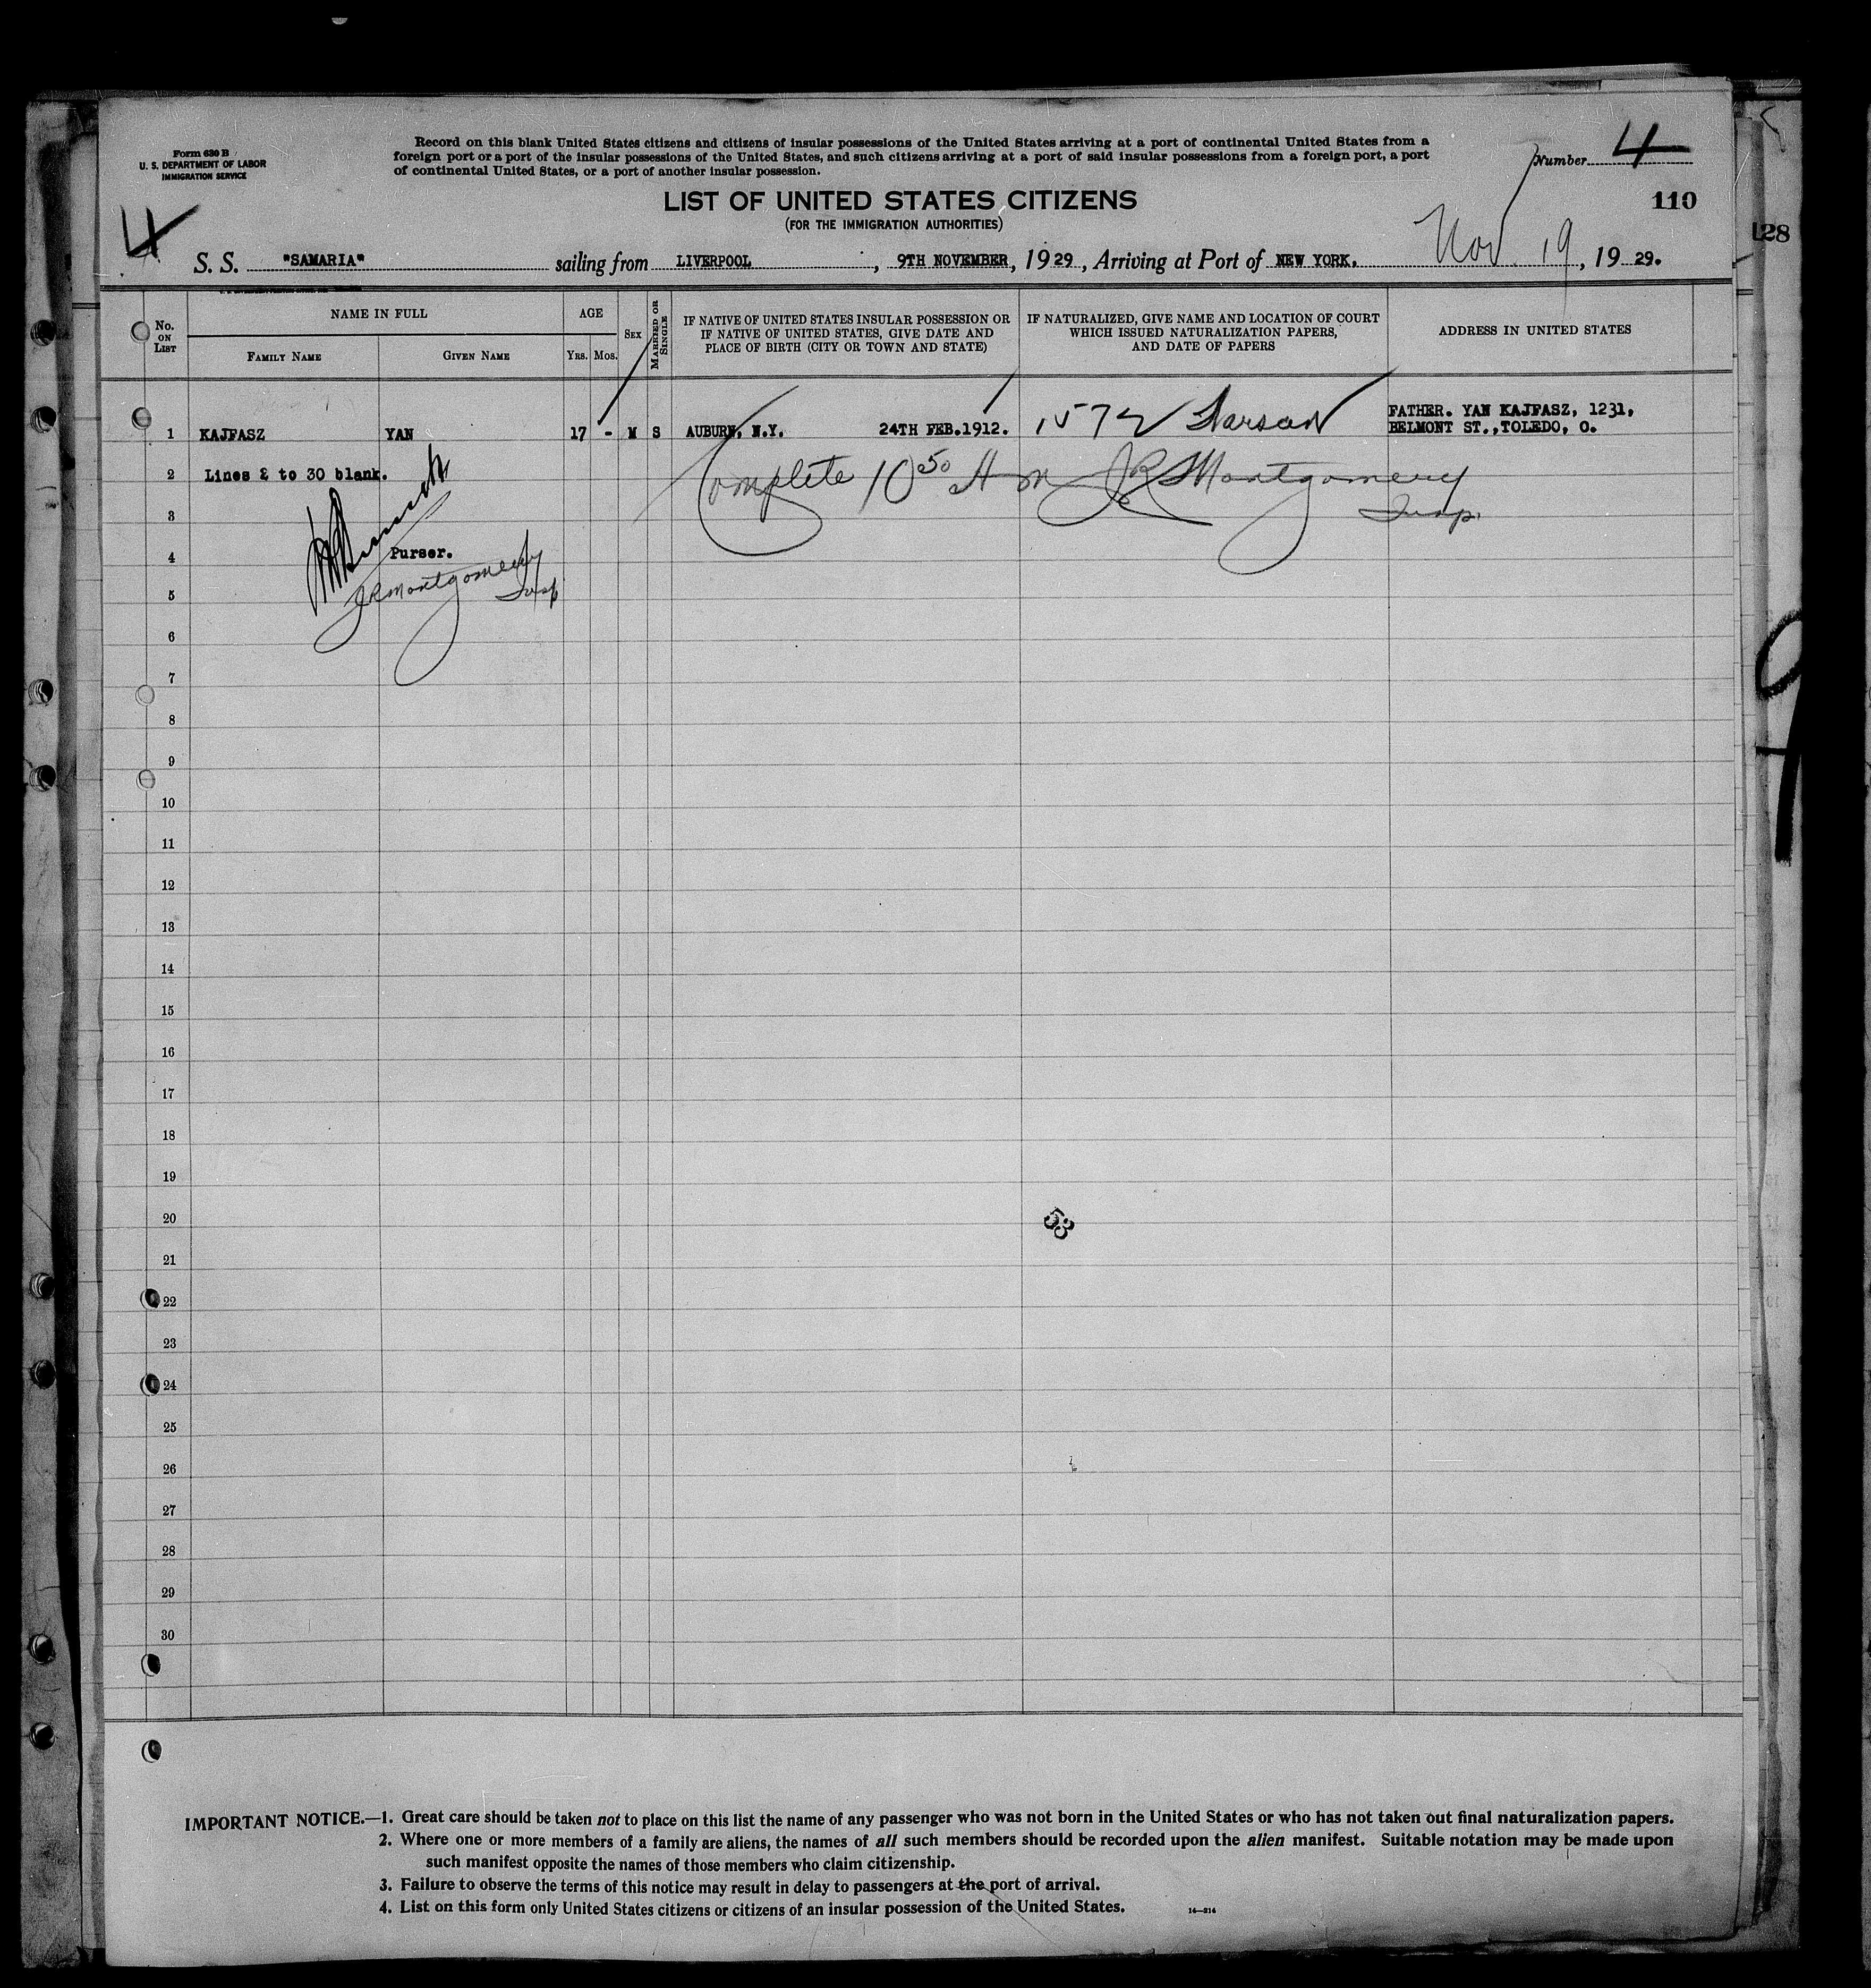 Form 630 B
U. S. DEPARTMENT OF LABOR
IMMIGRATION SERVICE
Record on this blank United States citizens and citizens of insular possessions of the United States arriving at a port of continental United States from a
foreign port or a port of the insular possessions of the United States, and such citizens arriving at a port of said insular possessions from a foreign port, a port
of continental United States, or a port of another insular possession.
Number 4
LIST OF UNITED STATES CITIZENS
110
(FOR THE IMMIGRATION AUTHORITIES)
128
4
S. S. "SAMARIA" sailing from LIVERPOOL, 9TH NOVEMBER, 1929, Arriving at Port of NEW YORK. Nov 19, 1929.
No. ON LIST
NAME IN FULL
FAMILY NAME
GIVEN NAME
AGE
YRS.
MOS.
SEX
MARRIED OR SINGLE
IF NATIVE OF UNITED STATES INSULAR POSSESSION OR
IF NATIVE OF UNITED STATES, GIVE DATE AND
PLACE OF BIRTH (CITY OR TOWN AND STATE)
IF NATURALIZED, GIVE NAME AND LOCATION OF COURT
WHICH ISSUED NATURALIZATION PAPERS,
AND DATE OF PAPERS
ADDRESS IN UNITED STATES
1 KAJFASZ YAN 17 - M S AUBURN, N.Y. 24TH FEB.1912. 1572 Larson FATHER. YAN KAJFASZ, 1231,
BELMONT ST.,TOLEDO, O.
2 Lines 2 to 30 blank. Complete 10 50 A m JR Montgomery
3 Insp.
4 Purser.
JR Montgomery
5 Insp
6
7
8
9
9
10
11
12
13
14
15
16
17
18
19
20 53
21
22
23
24
25
26
27
28
29
30
IMPORTANT NOTICE.—1. Great care should be taken not to place on this list the name of any passenger who was not born in the United States or who has not taken out final naturalization papers.
2. Where one or more members of a family are aliens, the names of all such members should be recorded upon the alien manifest. Suitable notation may be made upon
such manifest opposite the names of those members who claim citizenship.
3. Failure to observe the terms of this notice may result in delay to passengers at the port of arrival.
4. List on this form only United States citizens or citizens of an insular possession of the United States.
14—214